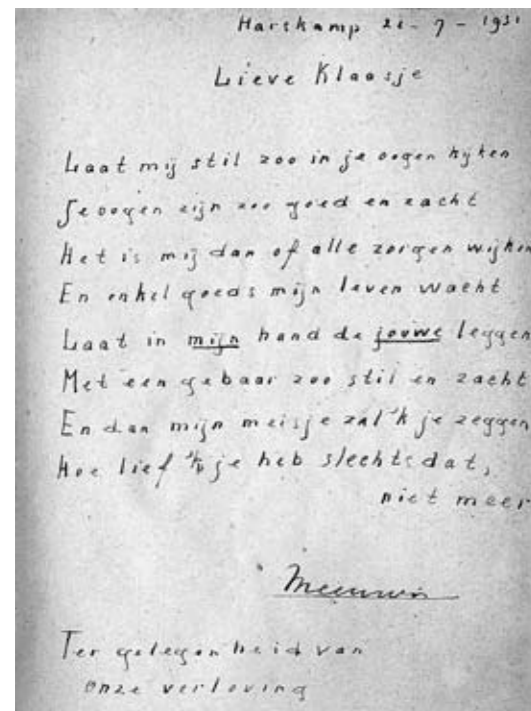 Harskamp 21-7-1931
Lieve Klaasje
Laat mij stil zoo in je oogen kijken
Je oogen zijn zoo goed en zacht
Het is mij dan of alle zorgen wijken
En enkel goeds mijn leven wacht
Laat in mijn hand de jouwe leggen
Met een gebaar zoo stil en zacht
En dan mijn meisje zal 'k je zeggen
Hoe lief 'k je heb slechts dat,
niet meer
Meeuwis
Ter gelegenheid van
onze verloving